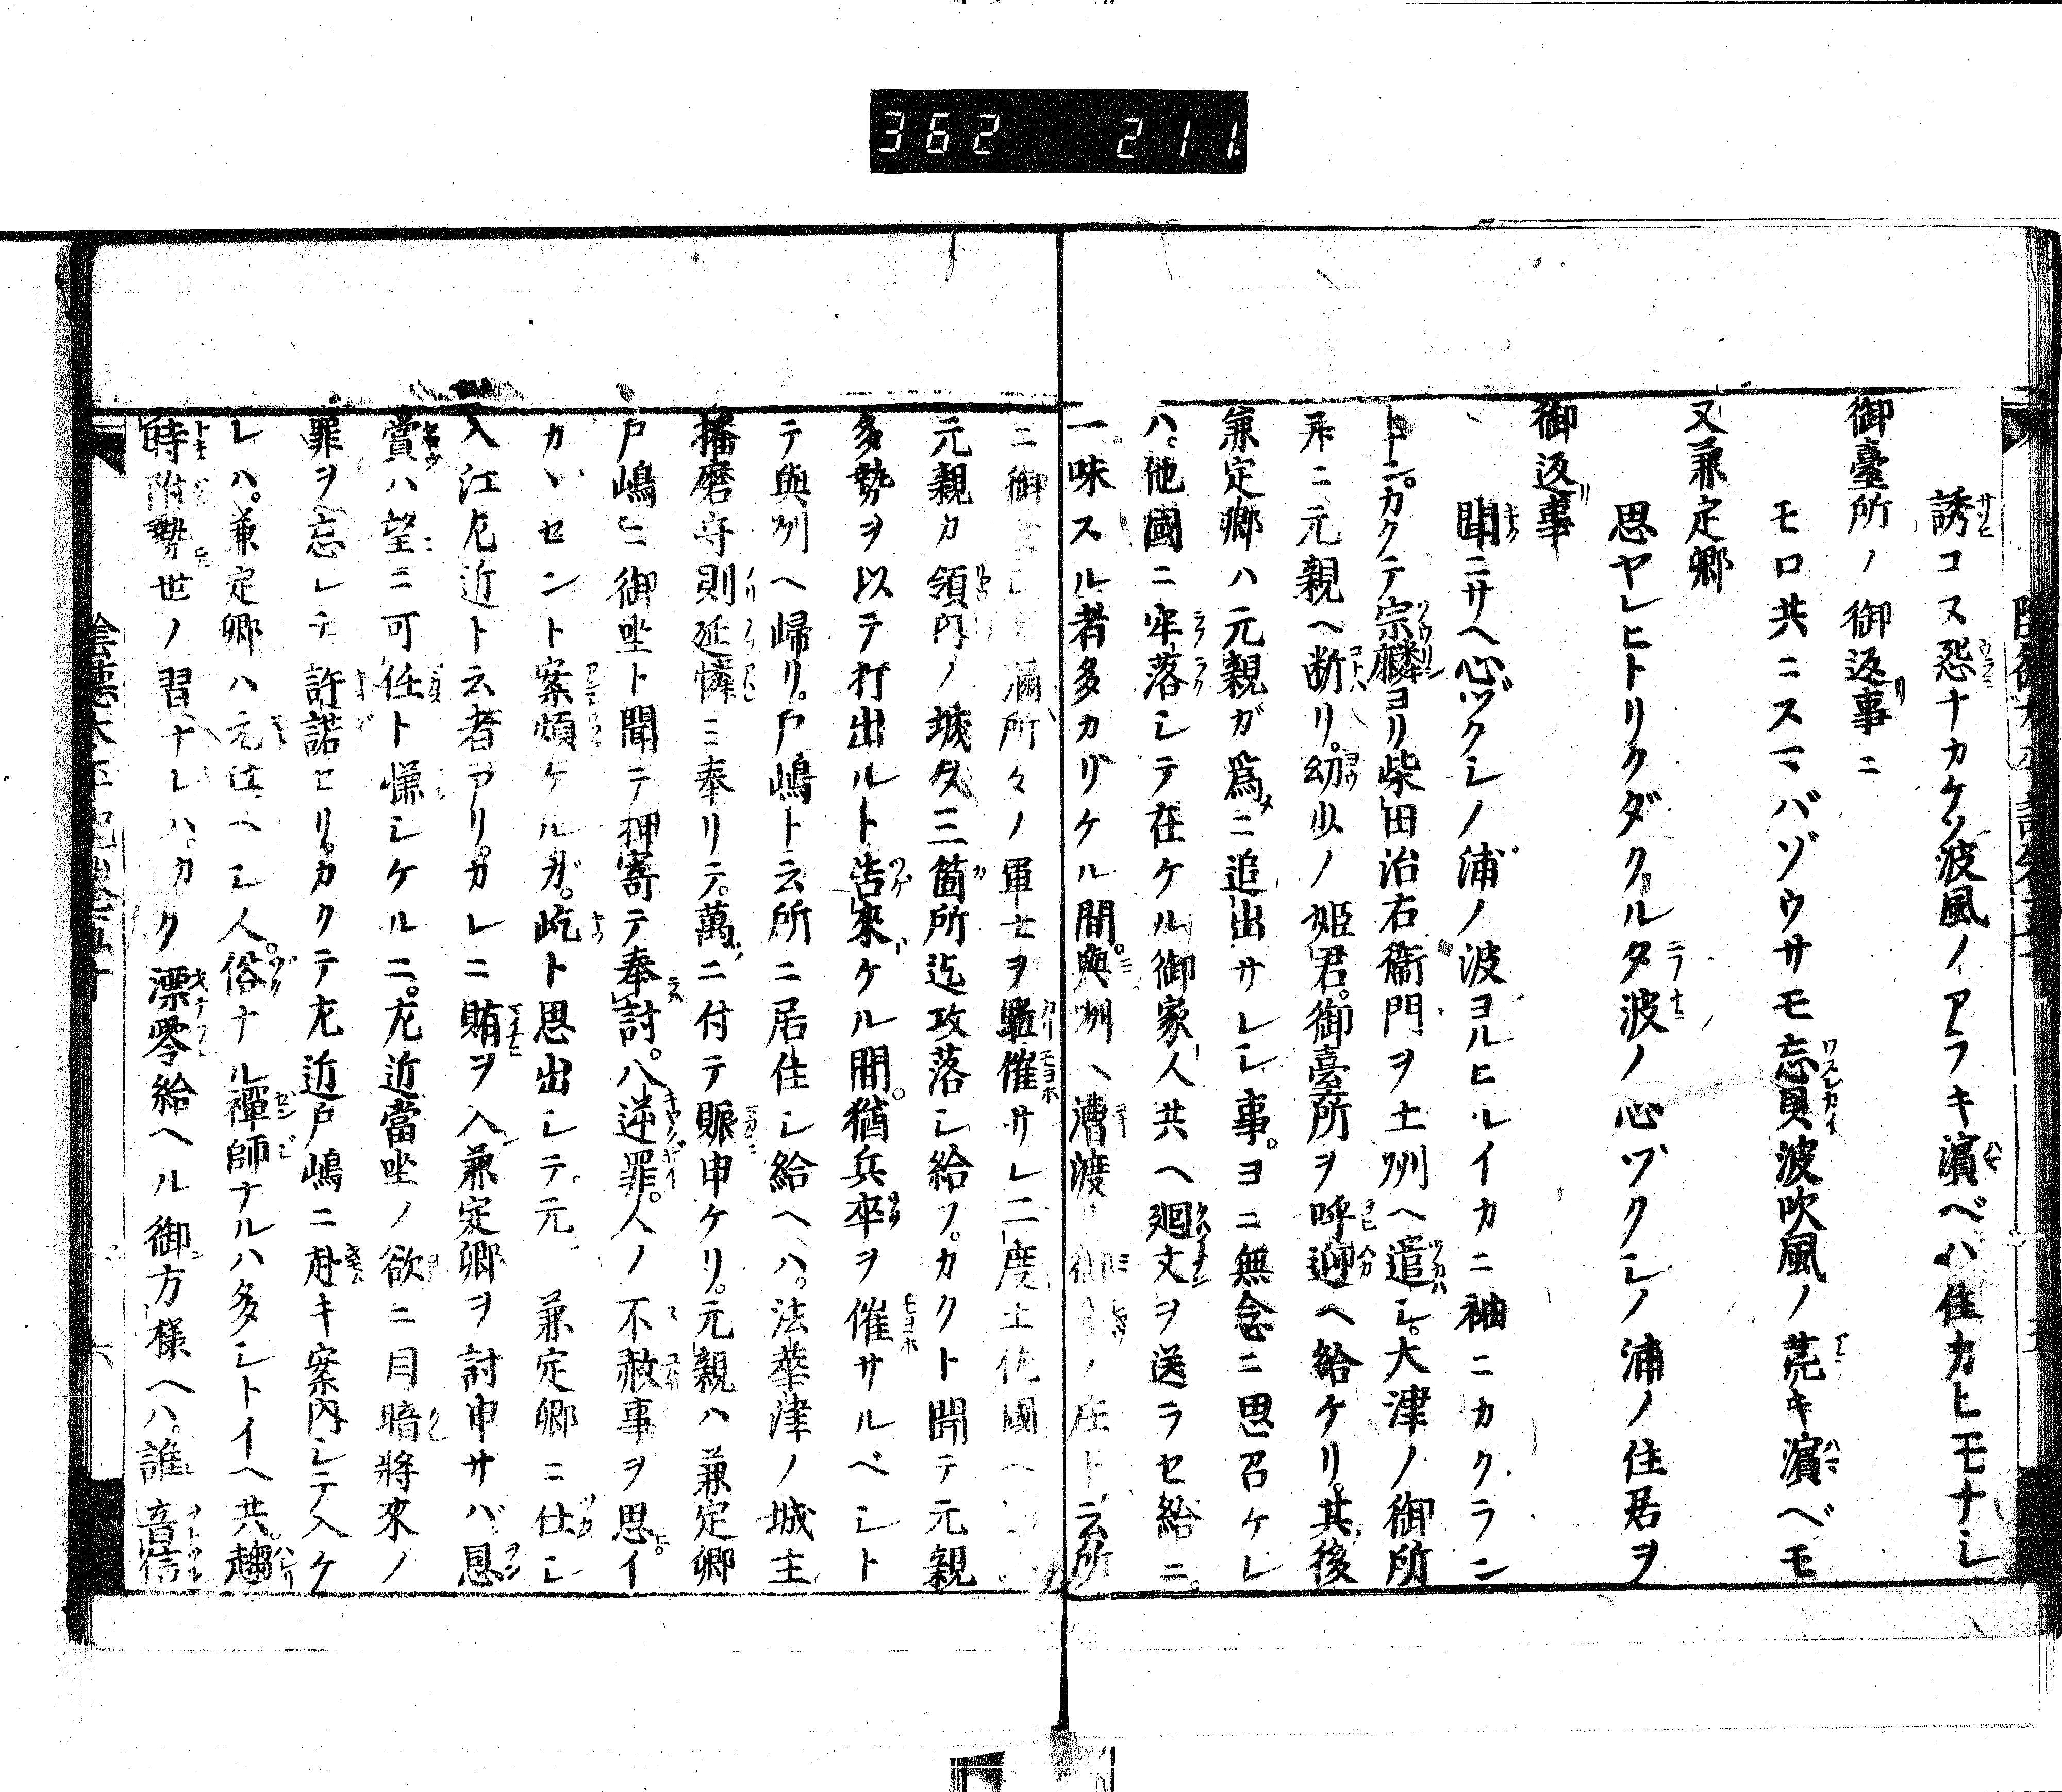 362 211.
誘コス怨ナカケソ波風ノアラキ濱ベハ住カヒモナシ
御臺所ノ御返事ニ
モロ共ニスマバゾウサモ忘貝波吹風ノ荒キ濱ベモ
又兼定卿
思ヤレヒトリクダクルタ波ノ心ヅクシノ浦ノ住居ヲ
御返事
聞ニサヘ心ヅクシノ浦ノ波ヨルヒルイカニ袖ニカクラン
トニ。カクテ宗麟ヨリ柴田治右衞門ヲ土州ヘ遣シ。大津ノ御所
ニ元親ヘ断リ。幼少ノ姫君。御臺所ヲ呼迎ヘ給ケリ。其後
兼定卿ハ元親ガ爲ニ追出サレシ事。ヨニ無念ニ思召ケレ
ハ。他國ニ牢落シテ在ケル御家人共ヘ廻文ヲ送ラセ給ニ。
一味スル者多カリケル間。與州ヘ漕渡リ御ノ庄ト云所
ニ御所々ノ軍士ヲ驅催サレ二度土佐國ヘ
元親カ領内ノ城タ三箇所迄攻落シ給フ。カクト聞テ元親
多勢ヲ以テ打出ルト告來ケル間。猶兵卒ヲ催サルベシト
テ與州ヘ歸リ。戸嶋ト云所ニ居住シ給ヘハ。法華津ノ城主
播磨守則延憐ミ奉リテ。萬ニ付テ賑申ケリ。元親ハ兼定卿
戸嶋ニ御坐ト聞テ押寄テ奉討。八逆罪。人ノ不赦事ヲ思。イ
カヽセント案煩ケルガ。屹ト思出シテ。元兼定卿ニ仕シ
入江左近ト云者アリ。カレニ賄ヲ入兼定卿ヲ討申サバ恩
賞ハ望ミニ可任ト慊シケルニ。左近當坐ノ欲ニ目暗將來ノ
罪ヲ忘レテ許諾セリ。カクテ左近戸嶋ニ赴キ案内シテ入ケ
レハ。兼定卿ハ元仕ヘシ人。俗ナル禪師ナルハ多シトイヘ共。趨
時附勢世ノ習ナレハ。カク漂零給ヘル御方樣ヘハ。誰音信
陰德太平記卷五十
六